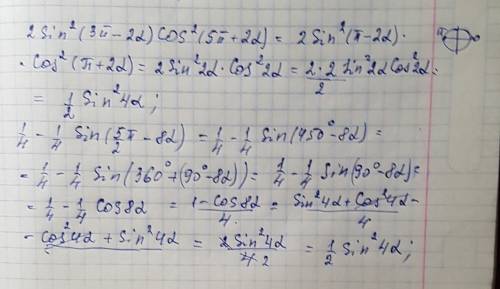 2Sin²(3π-2α)Cos²(5π+2α) = 2Sin²(π-2α)·
·Cos²(π+2α) = 2Sin²2α·Cos²2α = 2·2Sin²2αCos²2α/2 =
= 1/2 Sin²4α;
1/4 - 1/4 Sin(5/2π - 8α) = 1/4 - 1/4 Sin(450°-8α) =
= 1/4 - 1/4 Sin(360°+(90°-8α)) = 1/4 - 1/4 Sin(90°-8α) =
= 1/4 - 1/4 Cos8α = 1-Cos8α/4 = Sin²4α + Cos²4α -/4
- Cos²4α + Sin²4α = 2Sin²4α/4 2 = 1/2 Sin²4α;